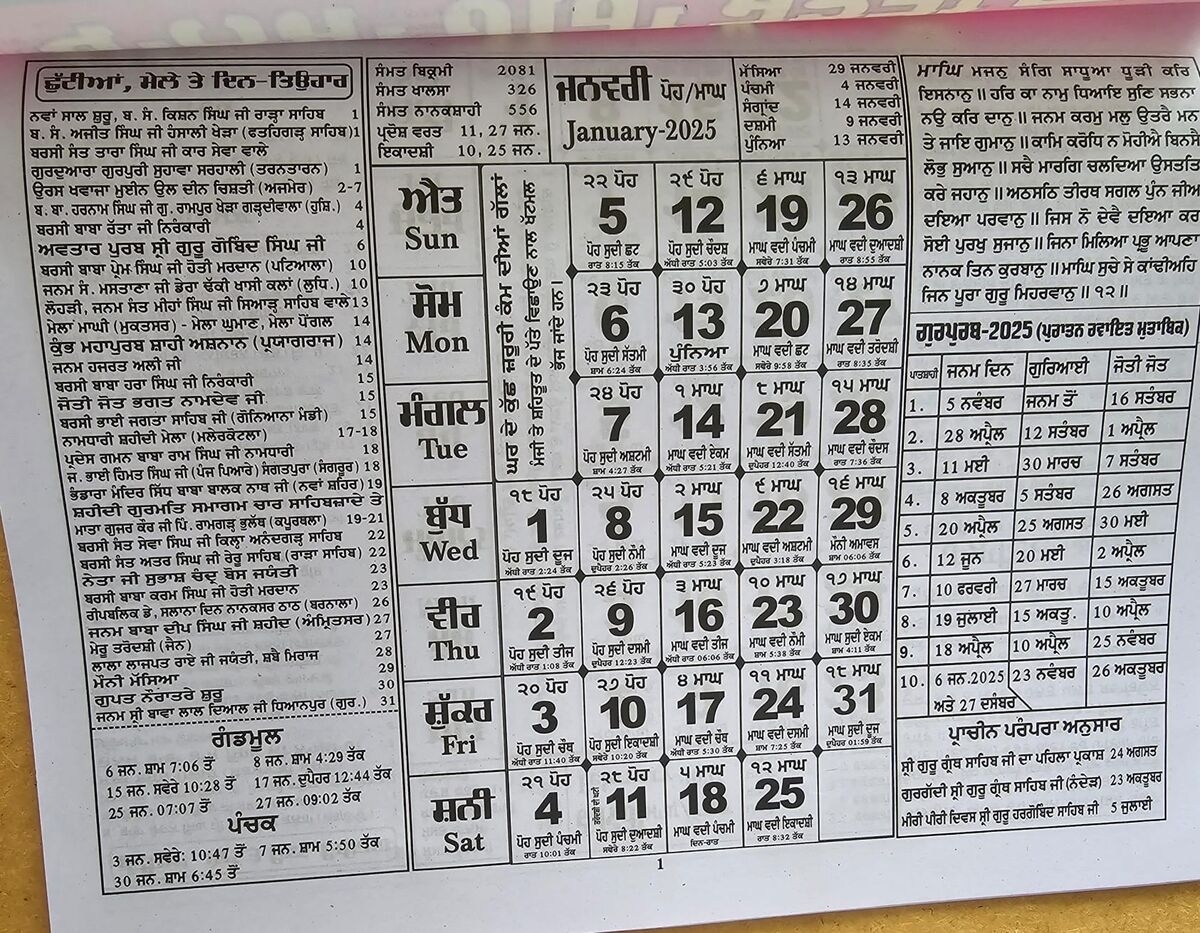 ਛੁੱਟੀਆਂ, ਮੇਲੇ ਤੇ ਦਿਨ-ਤਿਉਹਾਰ
ਨਵਾਂ ਸਾਲ ਸ਼ੁਰੂ, ਬ. ਸੰ. ਕਿਸ਼ਨ ਸਿੰਘ ਜੀ ਰਾੜਾ ਸਾਹਿਬ 1
ਬ. ਸੰ. ਅਜੀਤ ਸਿੰਘ ਜੀ ਹੰਸਾਲੀ ਖੇੜਾ (ਫਤਹਿਗੜ੍ਹ ਸਾਹਿਬ) 1
ਬਰਸੀ ਸੰਤ ਤਾਰਾ ਸਿੰਘ ਜੀ ਕਾਰ ਸੇਵਾ ਵਾਲੇ
ਗੁਰਦੁਆਰਾ ਗੁਰਪੁਰੀ ਸੁਹਾਵਾ ਸਰਹਾਲੀ (ਤਰਨਤਾਰਨ) 1
ਉਰਸ ਖਵਾਜਾ ਮੁਈਨ ਉਲ ਦੀਨ ਚਿਸ਼ਤੀ (ਅਜਮੇਰ) 2-7
ਬ. ਬਾ. ਹਰਨਾਮ ਸਿੰਘ ਜੀ ਗੁ. ਰਾਮਪੁਰ ਖੇੜਾ ਗੜ੍ਹਦੀਵਾਲਾ (ਹੁਸ਼ਿ.) 4
ਬਰਸੀ ਬਾਬਾ ਰੱਤਾ ਜੀ ਨਿਰੰਕਾਰੀ 4
ਅਵਤਾਰ ਪੁਰਬ ਸ੍ਰੀ ਗੁਰੂ ਗੋਬਿੰਦ ਸਿੰਘ ਜੀ 6
ਬਰਸੀ ਬਾਬਾ ਪ੍ਰੇਮ ਸਿੰਘ ਜੀ ਹੋਤੀ ਮਰਦਾਨ (ਪਟਿਆਲਾ) 10
ਜਨਮ ਸੰ. ਮਸਤਾਣਾ ਜੀ ਡੇਰਾ ਢੱਕੀ ਖਾਸੀ ਕਲਾਂ (ਲੁਧਿ.) 10
ਲੋਹੜੀ, ਜਨਮ ਸੰਤ ਮੀਹਾਂ ਸਿੰਘ ਜੀ ਸਿਆੜ੍ਹ ਸਾਹਿਬ ਵਾਲੇ 13
ਮੇਲਾ ਮਾਘੀ (ਮੁਕਤਸਰ) - ਮੇਲਾ ਘੁਮਾਣ, ਮੇਲਾ ਪੌਂਗਲ 14
ਕੁੰਭ ਮਹਾਪੁਰਬ ਸ਼ਾਹੀ ਅਸ਼ਨਾਨ (ਪ੍ਰਯਾਗਰਾਜ) 14
ਜਨਮ ਹਜਰਤ ਅਲੀ ਜੀ 14
ਬਰਸੀ ਬਾਬਾ ਹਰਾ ਸਿੰਘ ਜੀ ਨਿਰੰਕਾਰੀ 15
ਜੋਤੀ ਜੋਤ ਭਗਤ ਨਾਮਦੇਵ ਜੀ 15
ਬਰਸੀ ਭਾਈ ਜਗਤਾ ਸਾਹਿਬ ਜੀ (ਗੋਨਿਆਨਾ ਮੰਡੀ) 15
ਨਾਮਧਾਰੀ ਸ਼ਹੀਦੀ ਮੇਲਾ (ਮਲੇਰਕੋਟਲਾ) 17-18
ਪ੍ਰਦੇਸ ਗਮਨ ਬਾਬਾ ਰਾਮ ਸਿੰਘ ਜੀ ਨਾਮਧਾਰੀ 18
ਜ. ਭਾਈ ਹਿੰਮਤ ਸਿੰਘ ਜੀ (ਪੰਜ ਪਿਆਰੇ) ਸੰਗਤਪੁਰਾ (ਸੰਗਰੂਰ) 18
ਭੰਡਾਰਾ ਮੰਦਿਰ ਸਿੱਧ ਬਾਬਾ ਬਾਲਕ ਨਾਥ ਜੀ (ਨਵਾਂ ਸ਼ਹਿਰ) 19
ਸ਼ਹੀਦੀ ਗੁਰਮਤਿ ਸਮਾਗਮ ਚਾਰ ਸਾਹਿਬਜ਼ਾਦੇ ਤੇ
ਮਾਤਾ ਗੁਜਰ ਕੌਰ ਜੀ ਪਿੰ. ਰਾਮਗੜ੍ਹ ਭੁਲੱਥ (ਕਪੂਰਥਲਾ) 19-21
ਬਰਸੀ ਸੰਤ ਸੇਵਾ ਸਿੰਘ ਜੀ ਕਿਲ੍ਹਾ ਅਨੰਦਗੜ੍ਹ ਸਾਹਿਬ 22
ਬਰਸੀ ਸੰਤ ਅਤਰ ਸਿੰਘ ਜੀ ਰੇਰੂ ਸਾਹਿਬ (ਰਾੜਾ ਸਾਹਿਬ) 22
ਨੇਤਾ ਜੀ ਸੁਭਾਸ਼ ਚੰਦ੍ਰ ਬੋਸ ਜਯੰਤੀ 23
ਬਰਸੀ ਬਾਬਾ ਕਰਮ ਸਿੰਘ ਜੀ ਹੋਤੀ ਮਰਦਾਨ 23
ਰੀਪਬਲਿਕ ਡੇ, ਸਲਾਨਾ ਦਿਨ ਨਾਨਕਸਰ ਠਾਠ (ਬਰਨਾਲਾ) 26
ਜਨਮ ਬਾਬਾ ਦੀਪ ਸਿੰਘ ਜੀ ਸ਼ਹੀਦ (ਅੰਮ੍ਰਿਤਸਰ) 27
ਮੇਰੂ ਤਰੋਦਸ਼ੀ (ਜੈਨ) 27
ਲਾਲਾ ਲਾਜਪਤ ਰਾਏ ਜੀ ਜਯੰਤੀ, ਸ਼ਬੈ ਮਿਰਾਜ 28
ਮੌਨੀ ਮੱਸਿਆ 29
ਗੁਪਤ ਨੌਰਾਤਰੇ ਸ਼ੁਰੂ 30
ਜਨਮ ਸ੍ਰੀ ਬਾਵਾ ਲਾਲ ਦਿਆਲ ਜੀ ਧਿਆਨਪੁਰ (ਗੁਰ.) 31
ਗੰਡਮੂਲ
6 ਜਨ. ਸ਼ਾਮ 7:06 ਤੋਂ 8 ਜਨ. ਸ਼ਾਮ 4:29 ਤੱਕ
15 ਜਨ. ਸਵੇਰੇ 10:28 ਤੋਂ 17 ਜਨ. ਦੁਪੈਹਰ 12:44 ਤੱਕ
25 ਜਨ. 07:07 ਤੋਂ 27 ਜਨ. 09:02 ਤੱਕ
ਪੰਚਕ
3 ਜਨ. ਸਵੇਰੇ: 10:47 ਤੋਂ 7 ਜਨ. ਸ਼ਾਮ 5:50 ਤੱਕ
30 ਜਨ. ਸ਼ਾਮ 6:45 ਤੋਂ
ਸੰਮਤ ਬਿਕ੍ਰਮੀ 2081
ਸੰਮਤ ਖਾਲਸਾ 326
ਸੰਮਤ ਨਾਨਕਸ਼ਾਹੀ 556
ਪ੍ਰਦੋਸ਼ ਵਰਤ 11, 27 ਜਨ.
ਇਕਾਦਸ਼ੀ 10, 25 ਜਨ.
ਜਨਵਰੀ ਪੋਹ/ਮਾਘ
January-2025
ਮੱਸਿਆ 29 ਜਨਵਰੀ
ਪੰਚਮੀ 4 ਜਨਵਰੀ
ਸੰਗ੍ਰਾਂਦ 14 ਜਨਵਰੀ
ਦਸ਼ਮੀ 9 ਜਨਵਰੀ
ਪੁੰਨਿਆ 13 ਜਨਵਰੀ
ਘਰ ਦੇ ਕੁੱਛ ਜ਼ਰੂਰੀ ਕੰਮ ਦੀਆਂ ਗੱਲਾਂ
ਮੰਜੀ ਤੇ ਸ਼ਹਿਤੂਤ ਦੇ ਪੱਤੇ ਵਿਛਾਉਣ ਨਾਲ ਖਟਮਲ
ਭੱਜ ਜਾਂਦੇ ਹਨ।
ਐਤ ੨੨ ਪੋਹ ੨੯ ਪੋਹ ੬ ਮਾਘ ੧੩ ਮਾਘ
Sun 5 12 19 26
ਪੋਹ ਸੁਦੀ ਛਟ ਪੋਹ ਸੁਦੀ ਚੌਦਸ਼ ਮਾਘ ਵਦੀ ਪੰਚਮੀ ਮਾਘ ਵਦੀ ਦੁਆਦਸ਼ੀ
ਰਾਤ 8:15 ਤੱਕ ਅੱਧੀ ਰਾਤ 5:03 ਤੱਕ ਸਵੇਰੇ 7:31 ਤੱਕ ਰਾਤ 8:55 ਤੱਕ
ਸੋਮ ੨੩ ਪੋਹ ੩੦ ਪੋਹ ੭ ਮਾਘ ੧੪ ਮਾਘ
Mon 6 13 20 27
ਪੋਹ ਸੁਦੀ ਸੱਤਮੀ ਪੁੰਨਿਆ ਮਾਘ ਵਦੀ ਛਟ ਮਾਘ ਵਦੀ ਤਰੋਦਸ਼ੀ
ਸ਼ਾਮ 6:24 ਤੱਕ ਅੱਧੀ ਰਾਤ 3:56 ਤੱਕ ਸਵੇਰੇ 9:58 ਤੱਕ ਰਾਤ 8:35 ਤੱਕ
ਮੰਗਲ ੨੪ ਪੋਹ ੧ ਮਾਘ ੮ ਮਾਘ ੧੫ ਮਾਘ
Tue 7 14 21 28
ਪੋਹ ਸੁਦੀ ਅਸ਼ਟਮੀ ਮਾਘ ਵਦੀ ਏਕਮ ਮਾਘ ਵਦੀ ਸੱਤਮੀ ਮਾਘ ਵਦੀ ਚੌਦਸ
ਸ਼ਾਮ 4:27 ਤੱਕ ਅੱਧੀ ਰਾਤ 5:21 ਤੱਕ ਦੁਪੈਹਰ 12:40 ਤੱਕ ਰਾਤ 7:36 ਤੱਕ
ਬੁੱਧ ੧੮ ਪੋਹ ੨੫ ਪੋਹ ੨ ਮਾਘ ੯ ਮਾਘ ੧੬ ਮਾਘ
Wed 1 8 15 22 29
ਪੋਹ ਸੁਦੀ ਦੂਜ ਪੋਹ ਸੁਦੀ ਨੌਮੀ ਮਾਘ ਵਦੀ ਦੂਜ ਮਾਘ ਵਦੀ ਅਸ਼ਟਮੀ ਮੌਨੀ ਅਮਾਵਸ
ਅੱਧੀ ਰਾਤ 2:24 ਤੱਕ ਦੁਪੈਹਰ 2:26 ਤੱਕ ਅੱਧੀ ਰਾਤ 5:23 ਤੱਕ ਦੁਪੈਹਰ 3:18 ਤੱਕ ਸ਼ਾਮ 06:06 ਤੱਕ
ਵੀਰ ੧੯ ਪੋਹ ੨੬ ਪੋਹ ੩ ਮਾਘ ੧੦ ਮਾਘ ੧੭ ਮਾਘ
Thu 2 9 16 23 30
ਪੋਹ ਸੁਦੀ ਤੀਜ ਪੋਹ ਸੁਦੀ ਦਸਮੀ ਮਾਘ ਵਦੀ ਤੀਜ ਮਾਘ ਵਦੀ ਨੌਮੀ ਮਾਘ ਸੁਦੀ ਏਕਮ
ਅੱਧੀ ਰਾਤ 1:08 ਤੱਕ ਦੁਪੈਹਰ 12:23 ਤੱਕ ਅੱਧੀ ਰਾਤ 06:06 ਤੱਕ ਸ਼ਾਮ 5:38 ਤੱਕ ਸ਼ਾਮ 4:11 ਤੱਕ
ਸ਼ੁੱਕਰ ੨੦ ਪੋਹ ੨੭ ਪੋਹ ੪ ਮਾਘ ੧੧ ਮਾਘ ੧੮ ਮਾਘ
Fri 3 10 17 24 31
ਪੋਹ ਸੁਦੀ ਚੌਥ ਪੋਹ ਸੁਦੀ ਇਕਾਦਸ਼ੀ ਮਾਘ ਵਦੀ ਚੌਥ ਮਾਘ ਵਦੀ ਦਸਮੀ ਮਾਘ ਸੁਦੀ ਦੂਜ
ਅੱਧੀ ਰਾਤ 11:40 ਤੱਕ ਸਵੇਰੇ 10:20 ਤੱਕ ਅੱਧੀ ਰਾਤ 5:30 ਤੱਕ ਸ਼ਾਮ 7:25 ਤੱਕ ਦੁਪੈਹਰ 01:59 ਤੱਕ
ਸ਼ਨੀ ੨੧ ਪੋਹ ੨੮ ਪੋਹ ੫ ਮਾਘ ੧੨ ਮਾਘ
Sat 4 11 18 25
ਪੋਹ ਸੁਦੀ ਪੰਚਮੀ ਪੋਹ ਸੁਦੀ ਦੁਆਦਸ਼ੀ ਮਾਘ ਵਦੀ ਪੰਚਮੀ ਮਾਘ ਵਦੀ ਇਕਾਦਸ਼ੀ
ਰਾਤ 10:01 ਤੱਕ ਸਵੇਰੇ 8:22 ਤੱਕ ਦਿਨ-ਰਾਤ ਰਾਤ 8:32 ਤੱਕ
1
ਮਾਘਿ ਮਜਨੁ ਸੰਗਿ ਸਾਧੂਆ ਧੂੜੀ ਕਰਿ
ਇਸਨਾਨੁ॥ ਹਰਿ ਕਾ ਨਾਮੁ ਧਿਆਇ ਸੁਣਿ ਸਭਨਾ
ਨਉ ਕਰਿ ਦਾਨੁ॥ ਜਨਮ ਕਰਮ ਮਲੁ ਉਤਰੈ ਮਨ
ਤੇ ਜਾਇ ਗੁਮਾਨੁ॥ ਕਾਮਿ ਕਰੋਧਿ ਨ ਮੋਹੀਐ ਬਿਨਸੈ
ਲੋਭੁ ਸੁਆਨੁ॥ ਸਚੈ ਮਾਰਗਿ ਚਲਦਿਆ ਉਸਤਤਿ
ਕਰੇ ਜਹਾਨੁ॥ ਅਠਸਠਿ ਤੀਰਥ ਸਗਲ ਪੁੰਨ ਜੀਅ
ਦਇਆ ਪਰਵਾਨੁ॥ ਜਿਸ ਨੋ ਦੇਵੈ ਦਇਆ ਕਰਿ
ਸੋਈ ਪੁਰਖੁ ਸੁਜਾਨੁ॥ ਜਿਨਾ ਮਿਲਿਆ ਪ੍ਰਭੁ ਆਪਣਾ
ਨਾਨਕ ਤਿਨ ਕੁਰਬਾਨੁ॥ ਮਾਘਿ ਸੁਚੇ ਸੇ ਕਾਂਢੀਅਹਿ
ਜਿਨ ਪੂਰਾ ਗੁਰੁ ਮਿਹਰਵਾਨੁ॥ ੧੨॥
ਗੁਰਪੁਰਬ-2025 (ਪੁਰਾਤਨ ਰਵਾਇਤ ਮੁਤਾਬਿਕ)
ਪਾਤਸ਼ਾਹੀ ਜਨਮ ਦਿਨ ਗੁਰਿਆਈ ਜੋਤੀ ਜੋਤ
1. 5 ਨਵੰਬਰ ਜਨਮ ਤੋਂ 16 ਸਤੰਬਰ
2. 28 ਅਪ੍ਰੈਲ 12 ਸਤੰਬਰ 1 ਅਪ੍ਰੈਲ
3. 11 ਮਈ 30 ਮਾਰਚ 7 ਸਤੰਬਰ
4. 8 ਅਕਤੂਬਰ 5 ਸਤੰਬਰ 26 ਅਗਸਤ
5. 20 ਅਪ੍ਰੈਲ 25 ਅਗਸਤ 30 ਮਈ
6. 12 ਜੂਨ 20 ਮਈ 2 ਅਪ੍ਰੈਲ
7. 10 ਫਰਵਰੀ 27 ਮਾਰਚ 15 ਅਕਤੂਬਰ
8. 19 ਜੁਲਾਈ 15 ਅਕਤੂ. 10 ਅਪ੍ਰੈਲ
9. 18 ਅਪ੍ਰੈਲ 10 ਅਪ੍ਰੈਲ 25 ਨਵੰਬਰ
10. 6 ਜਨ.2025 23 ਨਵੰਬਰ 26 ਅਕਤੂਬਰ
ਅਤੇ 27 ਦਸੰਬਰ
ਪ੍ਰਾਚੀਨ ਪਰੰਪਰਾ ਅਨੁਸਾਰ
ਸ਼੍ਰੀ ਗੁਰੂ ਗ੍ਰੰਥ ਸਾਹਿਬ ਜੀ ਦਾ ਪਹਿਲਾ ਪ੍ਰਕਾਸ਼ 24 ਅਗਸਤ
ਗੁਰਗੱਦੀ ਸ੍ਰੀ ਗੁਰੂ ਗ੍ਰੰਥ ਸਾਹਿਬ ਜੀ (ਨੰਦੇੜ) 23 ਅਕਤੂਬਰ
ਮੀਰੀ ਪੀਰੀ ਦਿਵਸ ਸ੍ਰੀ ਗੁਰੂ ਹਰਗੋਬਿੰਦ ਸਾਹਿਬ ਜੀ 5 ਜੁਲਾਈ